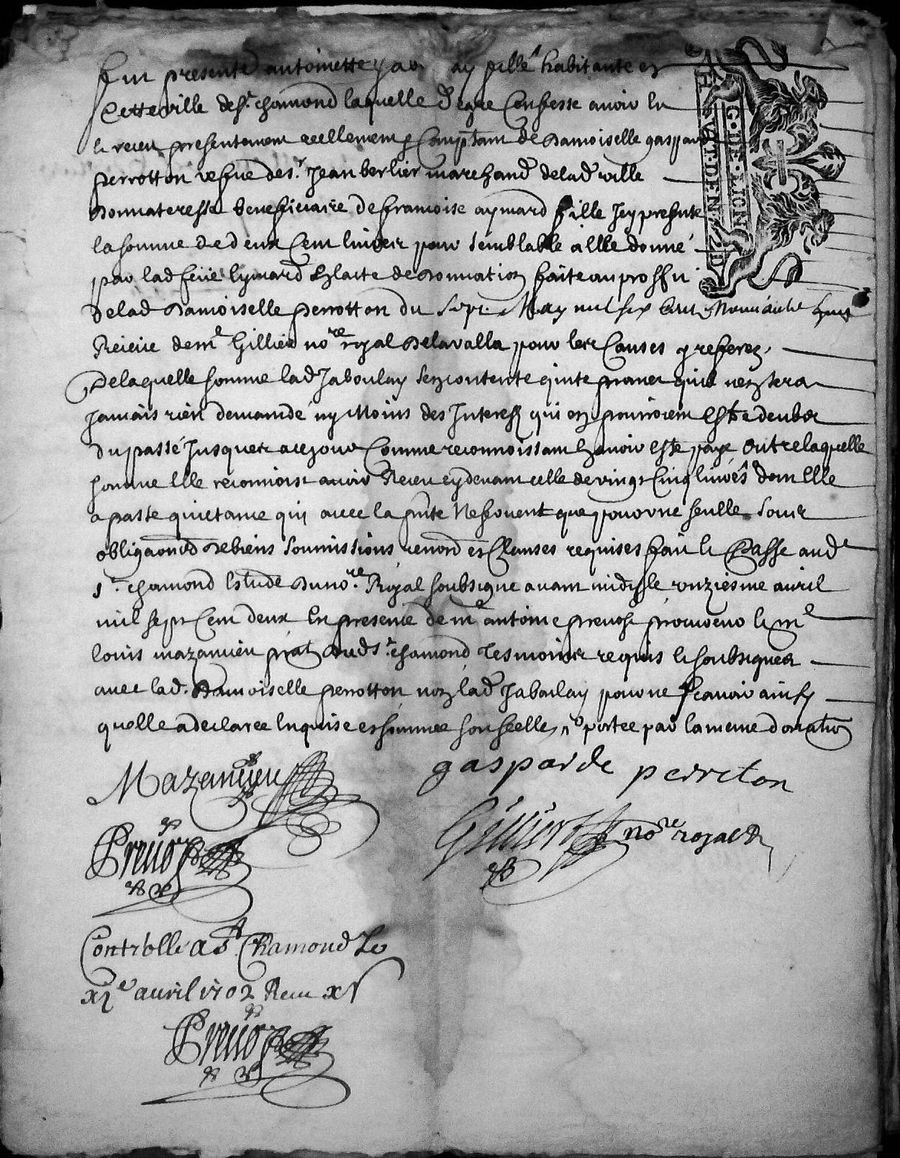 Fut presente antoinette jaboulay fille habitante en
cette ville de st. chamond laquelle de gre Confesse avoir eu
et receu presentement reellement Comptant de damoiselle gasparde
perrotton vefve de sr. Jean berlier marchand de lad. ville
donnateresse beneficiaire de framoise aymard fille Icy presente
la somme de deux Cent livres pour semblable a elle donné
par lad feue eymard Et lacte de donnation faite au proffit
de lad damoiselle perrotton du sept may mil six Cent
Receue de me. Gillier nore. royal delavalla pour les Causes
de laquelle somme lad Jaboulay sen contente quitte promet quil nen sera
jamais rien demande ny moins des Interests qui en pourroient estre deubz
du passé Jusques a ce jour Comme reconnoissant avoir esté payé outre laquelle
somme Elle reconnoist avoir Receu cy devant celle de vingt Cinq livres dont Elle
a passe quittance qui avec la pnte ne servent que pour une seulle soubz
obligaon de biens soumissions renond et Clauses requises fait et Passé aud.
st. chamond Estude du nore. Royal soubsigne avant midy le onziesme avril
mil sept Cent deux En presence de me. antoine prevost et me
louis mazanieu prat. dud st. chamond tesmoins requis et soubsignez
avec lad. damoiselle perrotton non lad. Jaboulay pour ne scavoir ainsy
quelle a declaree Enquise et sommee portee par la meme donation
Mazanieu
gasparde perreton
Prevost
Gillier nore royal
Controlle a St. Chamond Le
xie avril 1702 Receu
Prevost
G. DE LION
HVIT DEN